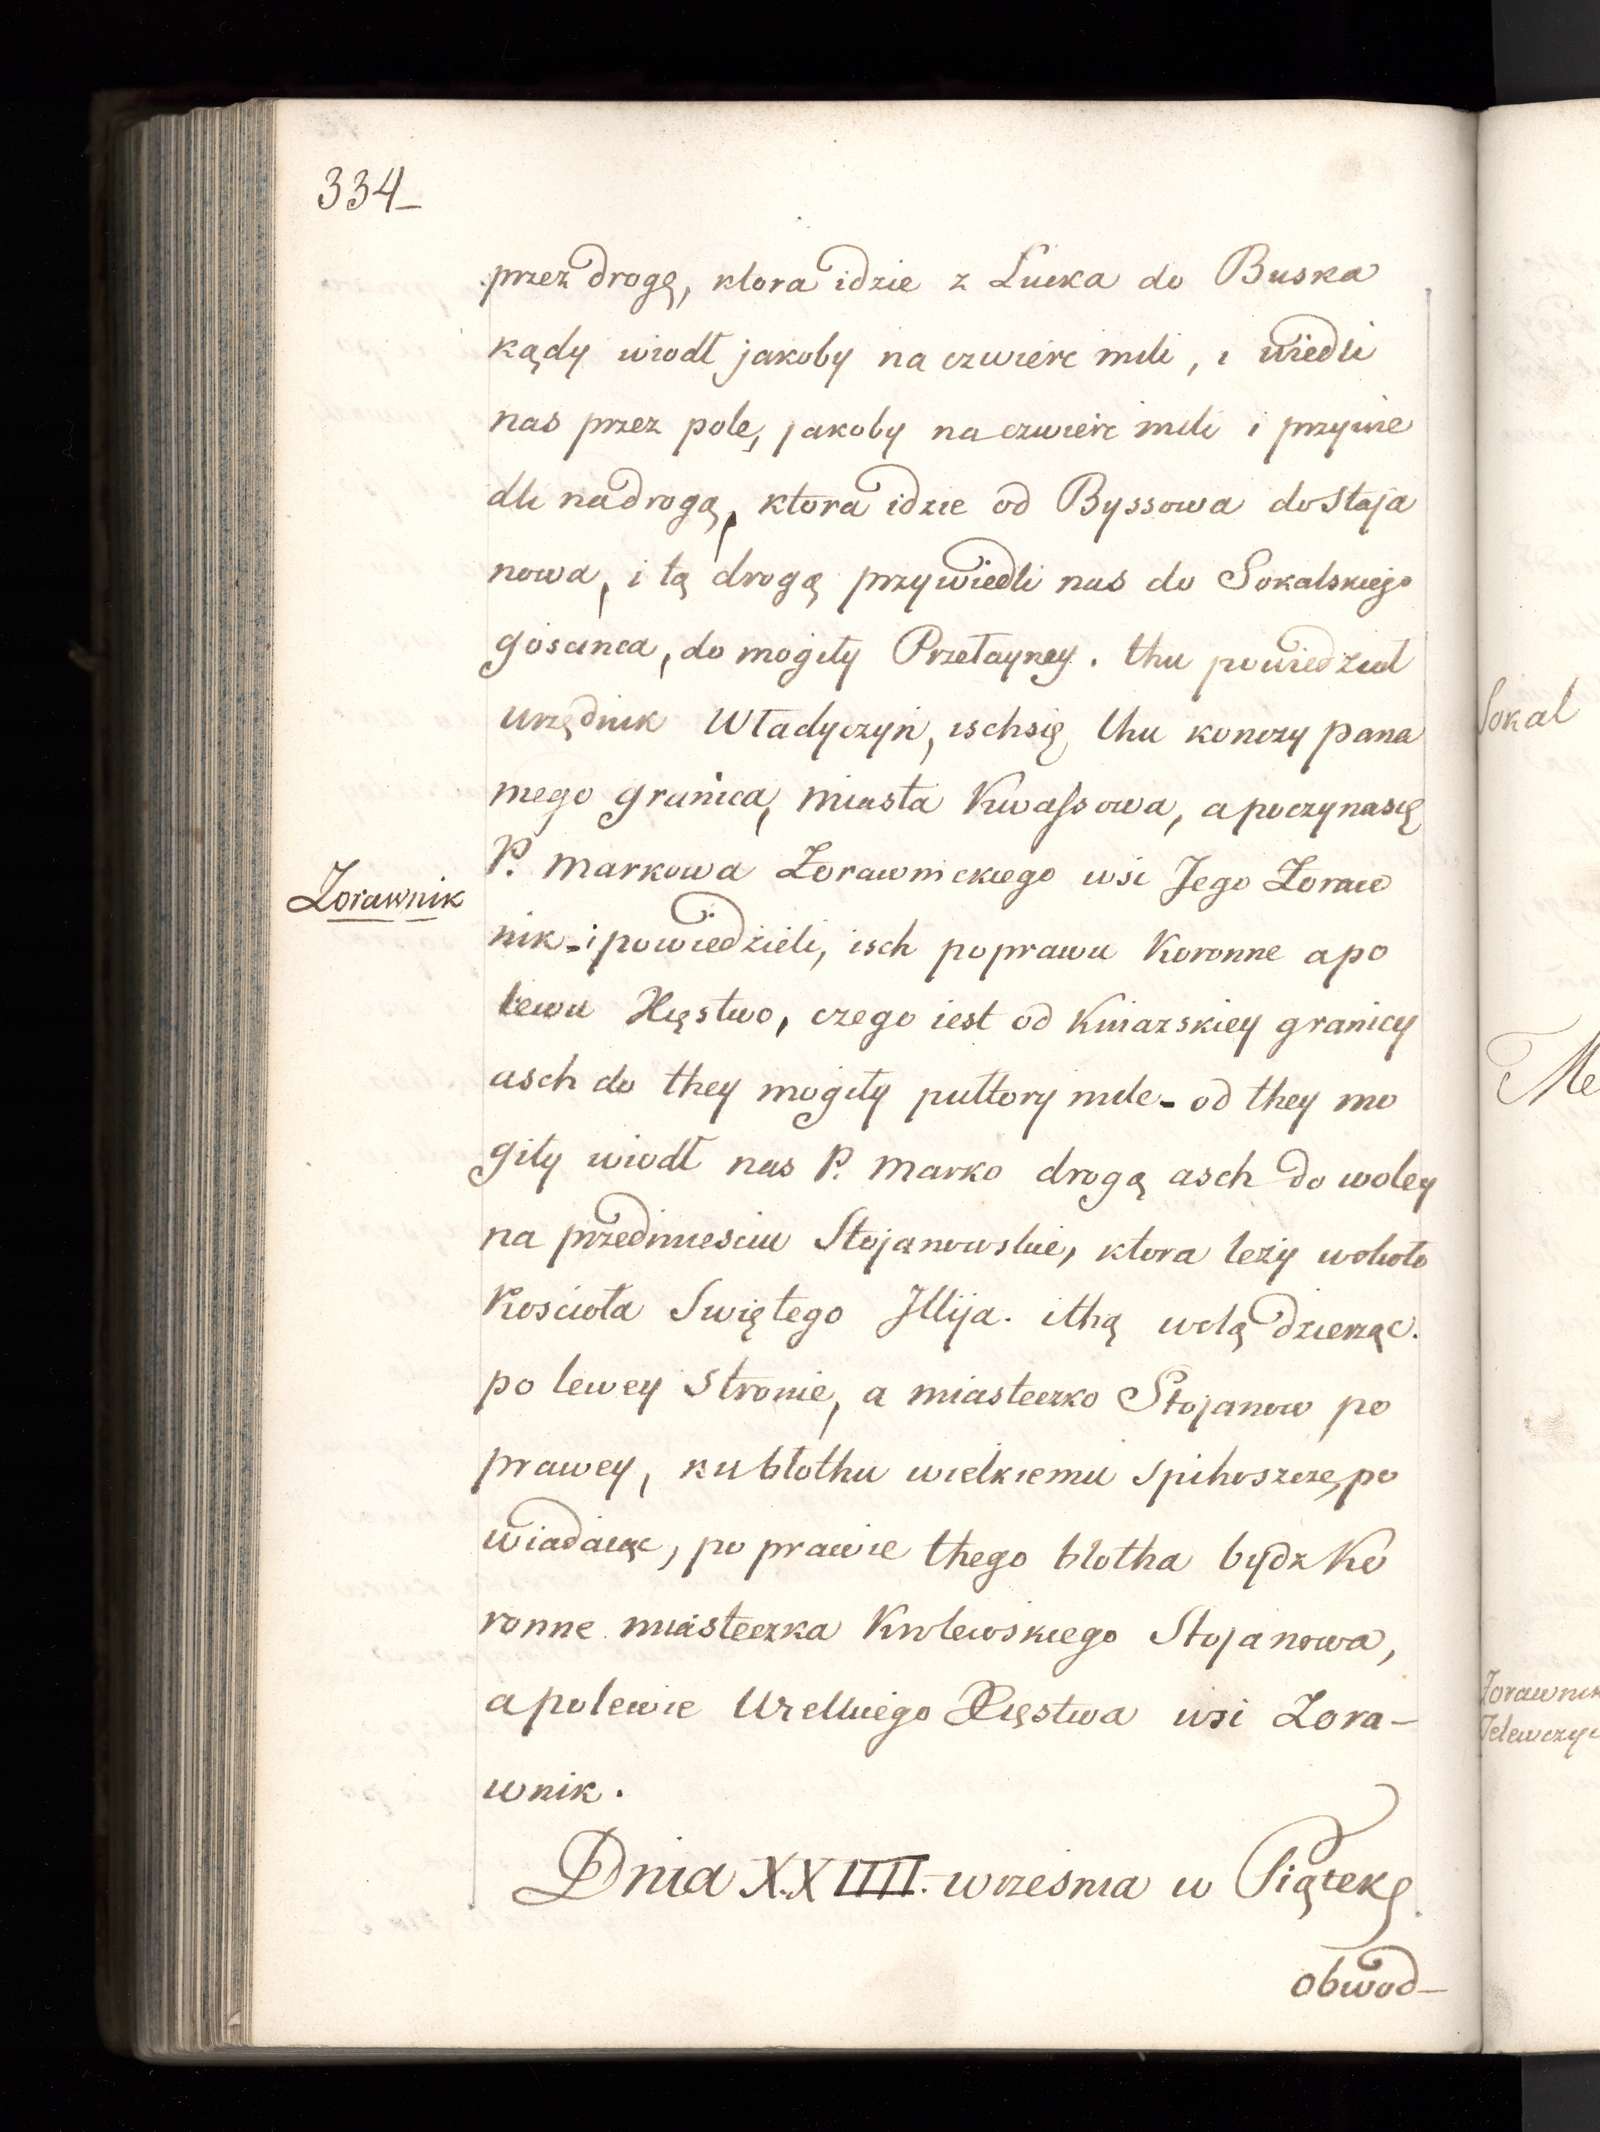 334
przez drogę, ktora idzie z Lucka do Buska
kądy wiodł jakoby na czwierc mili, i wiedli
nas przez pole, jakoby na czwierc mili i przywie
dli na drogą, ktora idzie od Byssowa do Staja
nowa, i tą drogą przywiedli nas do Sokalskiego
gosanca, do mogiły Przetayney. thu powiedzial
urzędnik Władyczyn, isch się thu konczy pana
mego granica, miasta Kwassowa, a poczyna się
P. Markowa Zorawnickiego wsi Jego Zoraw
Zorawnik
nik - i powiedzieli, isch po prawu Koronne a po
lewu Xięstwo, czego iest od Kniazskiey granicy
asch do they mogiły pułtory mile - od they mo
giły wiodł nas P. Marko drogą asch do woley
na przedmiesciu Stojanowskie, ktora leży wokoło
Koscioła Swiętego Jllija. i thą wolą dzierząc.
po lewey stronie, a miasteczko Stojanow po
prawey, ku błothu wielkiemu Spihoszcze, po
wiadaiąc, po prawie thego błotha bydz Ko
ronne miasteczka Krolewskiego Stojanowa,
a po lewie Wielkiego Xięstwa wsi Zora-
wnik.
Dnia X.XIIII. wrzesnia w Piątek
obwod-
Sokal
Me
Zorawnik
Telewczyc